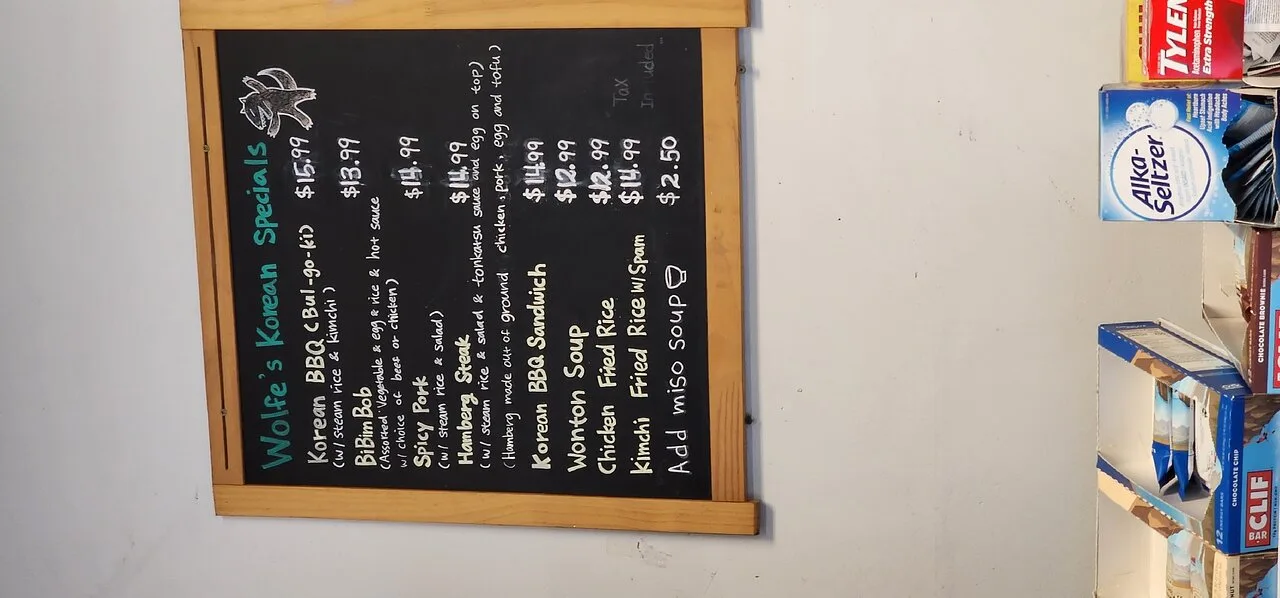 Wolfe's Korean Specials
Korean BBQ (Bul-go-ki) $15.99
(w/ steam rice & kimchi)
BiBimBob $13.99
(Assorted Vegetable & egg & rice & hot sauce
w/ choice of beef or chicken)
Spicy Pork $14.99
(w/ steam rice & salad)
Hamberg Steak $14.99
(w/ steam rice & salad & tonkatsu sauce and egg on top)
(Hamberg made out of ground chicken, pork, egg and tofu)
Korean BBQ Sandwich $14.99
Wonton Soup $12.99
Chicken Fried Rice $12.99
Kimchi Fried Rice w/Spam $14.99
Add miso soup $2.50
Tax
TYLEN
Acetaminophen
Extra Strength
Alka-
Seltzer
CHOCOLATE BROWNIE
CHOCOLATE CHIP
CLIF
BAR